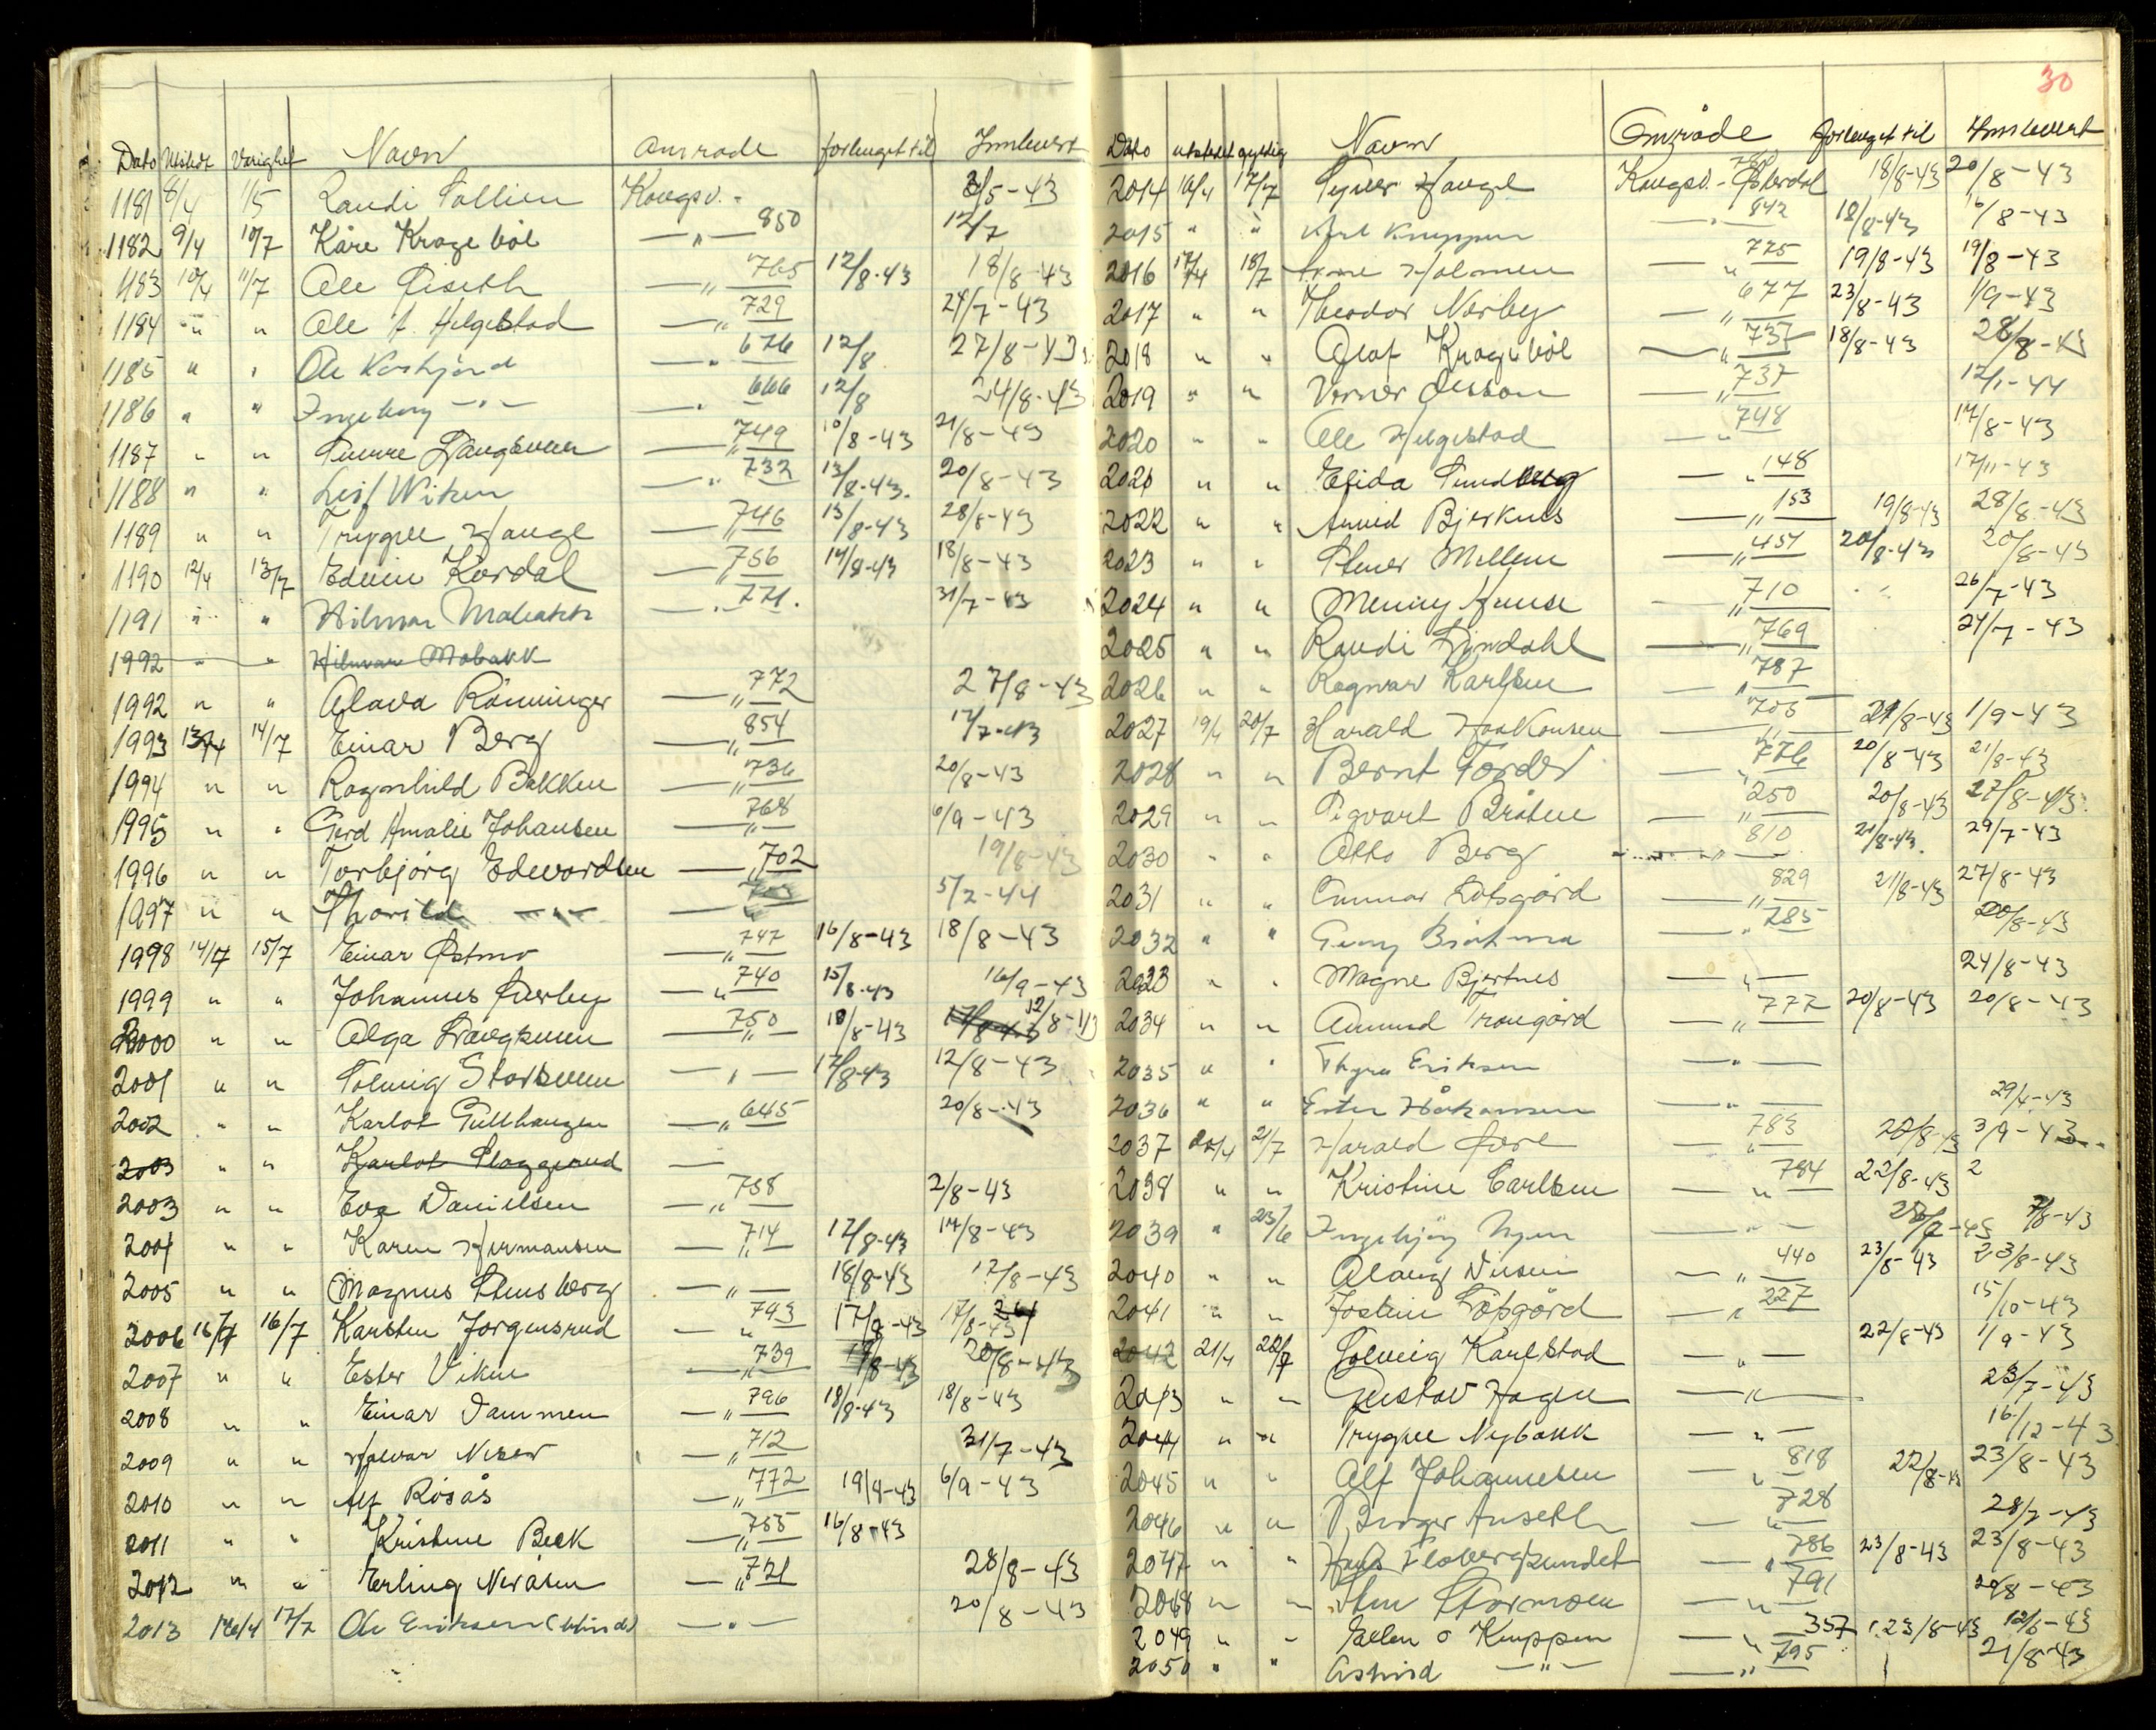 Dato Utstedt Varighet Navn Område forlenget til Innlevert
1181 8/4 1/5 Randi Sollien Kongsv. - 3/5-43
1182 9/4 10/7 Kåre Krogebøl —"— 850 12/7
1183 10/4 11/7 Ole Liseth —"— 765 12/8-43 18/8-43
1184 " " Ole A. Helgestad —"— 729 24/7-43
1185 " " Ole 676 12/8 27/8-43
1186 " " Ingeborg —"— —"— 666 12/8 24/8-43
1187 " " Sverre Langseven —"— 749 10/8-43 21/8-43
1188 " " Leif Wiken —"— 732 13/8-43. 20/8-43
1189 " " Trygve Hauge —"— 746 13/8-43 28/8-43
1190 12/4 13/7 Edvin Kordal —"— 756 14/8-43 18/8-43
1191 " " Hilmar Mobakk —"— 771. 31/7-43
1992 " " Hilmar Mobakk
1992 " " Olava Rønninger —"— 772 27/8-43
1993 13/4 14/7 Einar Berg —"— 854 17/7-43
1994 " " Ragnhild Bakken —"— 736 20/8-43
1995 " " Gerd Amalie Johansen —"— 768 6/9-43
1996 " " Torbjørg Edvardsen —"— 702 19/8-43
1997 " " Thorild —"— —"— 5/2-44
1998 14/4 15/7 Einar Østmo —"— 747 16/8-43 18/8-43
1999 " " Johannes Sverby —"— 740 15/8-43 16/9-43
2000 " " Olga Langseven —"— 750 18/8-43 12/8-43
2001 " " Solveig Storsveen —"— 17/8-43 12/8-43
2002 " " Karlot Gullhaugen —"— 645 20/8-43
2003 " " Karlot Slaggerud —
2003 " " Eva Danielsen —"— 758 2/8-43
2004 " " Karen Hermansen —"— 714 17/8-43 17/8-43
2005 " " Magnus Stensberg —"— 18/8-43 17/8-43
2006 16/4 16/7 Karsten Jørgensrud —"— 743 17/8-43 17/8-43
2007 " " Ester Viken —"— 739 17/8-43 20/8-43
2008 " " Einar Dammen —"— 796 18/8-43 18/8-43
2009 " " Halvar —"— 712 31/7-43
2010 " " Alf Rosås —"— 772 19/8-43 6/9-43
2011 " " Kristine Beck —"— 755 16/8-43
2012 " " Erling Neråsen —"— 721 28/8-43
2013 16/4 17/7 Ole Eriksen (blind) —"— 20/8-43
30
Dato utstedt gyldig Navn Område forlenget til Innlevert
2014 16/4 17/7 Signer Hauge Kongsv. - Østerdal 18/8-43 20/8-43
2015 " " Karl Knappen —"— 842 18/8-43 16/8-43
2016 17/4 18/7 Arne Holmen —"— 775 19/8-43 19/8-43
2017 " " Theodor Nørby —"— 677 23/8-43 1/9-43
2018 " " Olaf Krogebøl —"— 737 18/8-43 28/8-43
2019 " " Verner Olsson —"— 737 17/1-44
2020 " " Ole Helgestad —"— 748 17/8-43
2021 " " Elida Sundberg —"— 148 17/11-43
2022 " " Anved Bjerknes —"— 153 19/8-43 28/8-43
2023 " " Stener Mellem —"— 457 20/8-43 20/8-43
2024 " " Menny Hanse —"— 710 26/7-43
2025 " " Randi Lindahl —"— 769 24/7-43
2026 " " Ragnar Karlsen —"— 787
2027 19/4 20/7 Harald Haakonsen —"— 705 21/8-43 1/9-43
2028 " " Bernt Torder —"— 776 20/8-43 21/8-43
2029 " " Sigvart Bråten —"— 250 20/8-43 27/8-43
2030 " " Otto Berg —"— 810 21/8-43. 29/7-43
2031 " " Gunnar Lotsgård —"— 829 21/8-43 27/8-43
2032 " " Georg —"— 285 20/8-43
2033 " " Magne Bjertnes —"— 24/8-43
2034 " " Amund Trongård —"— 777 20/8-43 20/8-43
2035 " " Thyra Eriksen —"—
2036 " " Ester Håkansen —"— 29/4-43
2037 20/4 21/7 Harald —"— 783 20/8-43 3/9-43
2038 " " Kristine Carlsen —"— 784 22/8-43 2
2039 " 23/6 Ingebjørg Nyen —"— 7/8-43
2040 " " Olaug —"— 440 23/8-43 23/8-43
2041 " " Jostein Lopsgård —"— 227 15/10-43
2042 21/4 22/7 Solveig Karlstad —"— 22/8-43 1/9-43
2043 " " Gustav Hagen —"— 23/7-43
2044 " " Trygve Nybakk —"— 16/12-43
2045 " " Alf Johannesen —"— 818 22/8-43 23/8-43
2046 " " Birger Anseth —"— 728 28/7-43
2047 " " Hans Flobergsundet —"— 786 23/8-43 23/8-43
2048 " " Sten Stormoen —"— 791 20/8-43
2049 " " Ellen O Knappen —"— 357 23/8-43 12/6-43
2050 " " Astrid —"— —"— 795 21/8-43